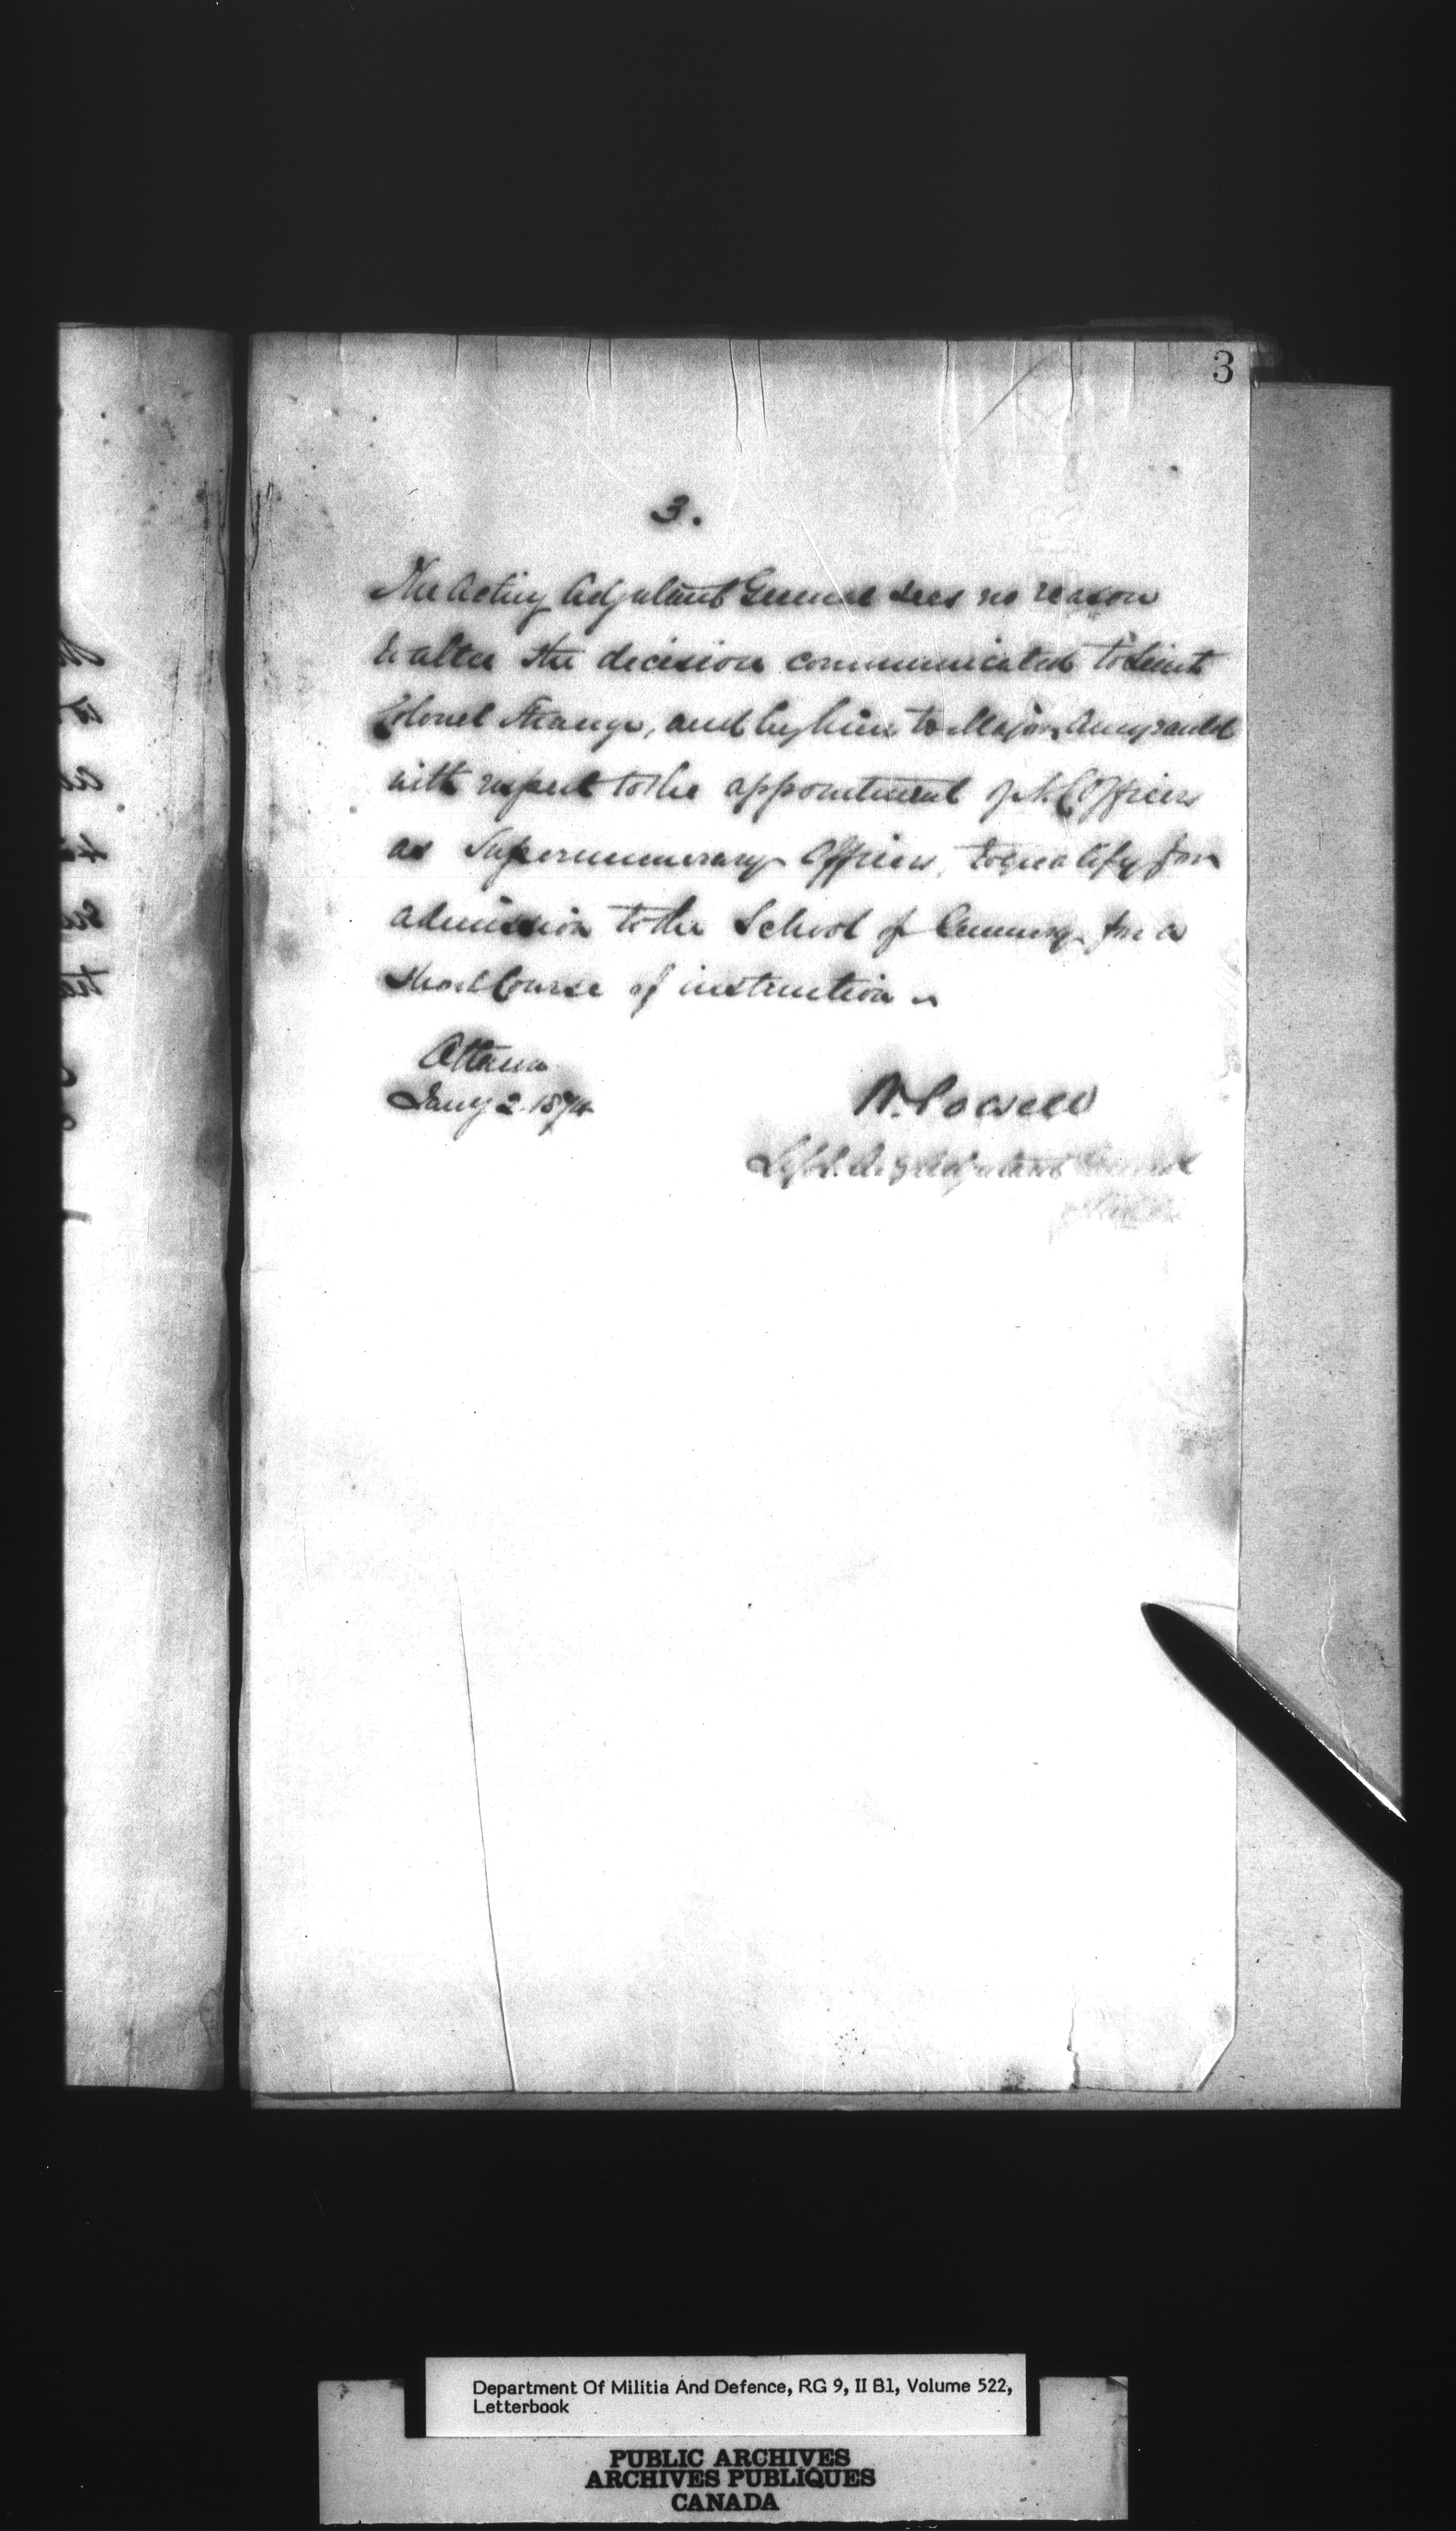 3
3.
The Acting Adjutant General sees no reason
to alter the decision communicated to Lieut
Colonel Strange, and by him to Major Amyrauld
with respect to the appointment of N.C. Officers
as Supernumerary Officers, to qualify for
admission to the School of Gunnery for a
Short Course of instruction
Ottawa
Jany 2. 1874
W. Powell
Adjutant General
Department Of Militia And Defence, RG 9, II B1, Volume 522,
Letterbook
PUBLIC ARCHIVES
ARCHIVES PUBLIQUES
CANADA